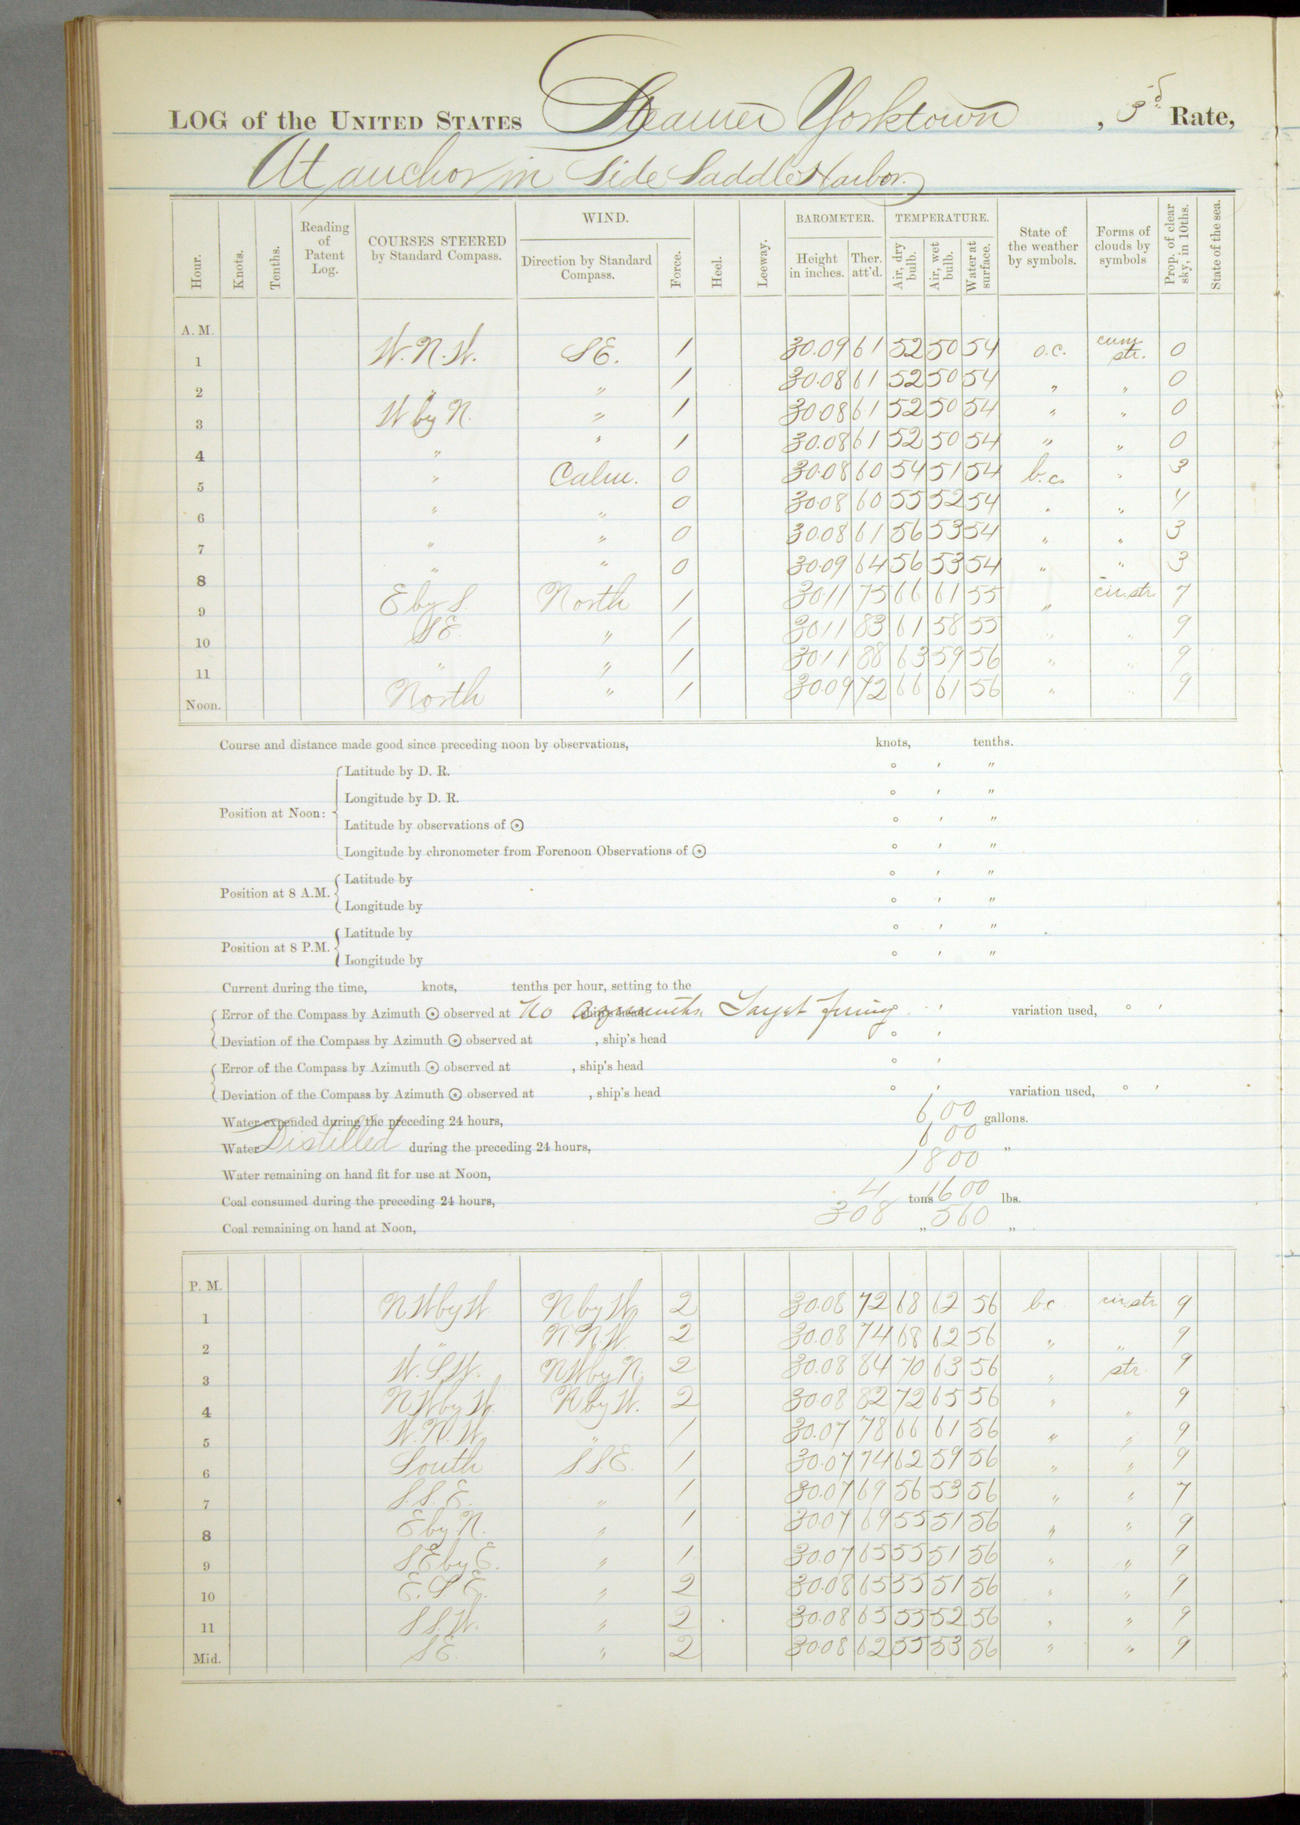 LOG of the UNITED STATES Steamer Yorktown, 3d Rate,
At anchor in Side Saddle Harbor.
Hour. Knots. Tenths. Reading of Patent Log. COURSES STEERED by Standard Compass. WIND. Direction by Standard Compass. Force. Heel. Leeway. BAROMETER. Height in inches. Ther. att'd. TEMPERATURE. Air, dry bulb. Air, wet bulb. Water at surface. State of the weather by symbols. Forms of clouds by symbols Prop. of clear sky, in 10ths. State of the sea.
A. M.
1 W.N.W. SE. 1 30.09 61 52 50 54 o.c. cum str. 0
2 " " 1 30.08 61 52 50 54 " " 0
3 W by N. " 1 30.08 61 52 50 54 " " 0
4 " " 1 30.08 61 52 50 54 " " 0
5 " Calm. 0 30.08 60 54 51 54 b.c. " 3
6 " " 0 30.08 60 55 52 54 " " 4
7 " " 0 30.08 61 56 53 54 " " 3
8 " " 0 30.09 64 56 53 54 " " 3
9 E by S. North 1 30.11 75 66 61 55 " cir. str. 7
10 SE. " 1 30.11 83 61 58 55 " " 9
11 " " 1 30.11 88 63 59 56 " " 9
Noon. North " 1 30.09 72 66 61 56 " " 9
Course and distance made good since preceding noon by observations, knots, tenths.
Latitude by D. R. ° ' "
Longitude by D. R. ° ' "
Position at Noon: Latitude by observations of ☉ ° ' "
Longitude by chronometer from Forenoon Observations of ☉ ° ' "
Position at 8 A.M. Latitude by ° ' "
Longitude by ° ' "
Position at 8 P.M. Latitude by ° ' "
Longitude by ° ' "
Current during the time, knots, tenths per hour, setting to the
Error of the Compass by Azimuth ☉ observed at No azimuths. Target firing ° ' variation used, ° '
Deviation of the Compass by Azimuth ☉ observed at , ship's head ° '
Error of the Compass by Azimuth ☉ observed at , ship's head ° '
Deviation of the Compass by Azimuth ☉ observed at , ship's head ° ' variation used, ° '
Water expended during the preceding 24 hours, 600 gallons.
Water Distilled during the preceding 24 hours, 600 "
Water remaining on hand fit for use at Noon, 1800
Coal consumed during the preceding 24 hours, 4 tons 1600 lbs.
Coal remaining on hand at Noon, 308 " 560 "
P. M.
1 NW by W. N by W. 2 30.08 72 68 62 56 b.c. cir. str. 9
2 " N N W. 2 30.08 74 68 62 56 " " 9
3 W. S. W. NW by N. 2 30.08 84 70 63 56 " str. 9
4 NW by W. N by W. 2 30.08 82 72 65 56 " " 9
5 W. N. W. " 1 30.07 78 66 61 56 " " 9
6 South S S E. 1 30.07 74 62 59 56 " " 9
7 S. S. E. " 1 30.07 69 56 53 56 " " 7
8 E by N. " 1 30.07 69 55 51 56 " " 9
9 SE by E. " 1 30.07 65 55 51 56 " " 9
10 E. S. E. " 2 30.08 65 55 51 56 " " 9
11 S S. W. " 2 30.08 63 55 52 56 " " 9
Mid. SE. " 2 30.08 62 55 53 56 " " 9